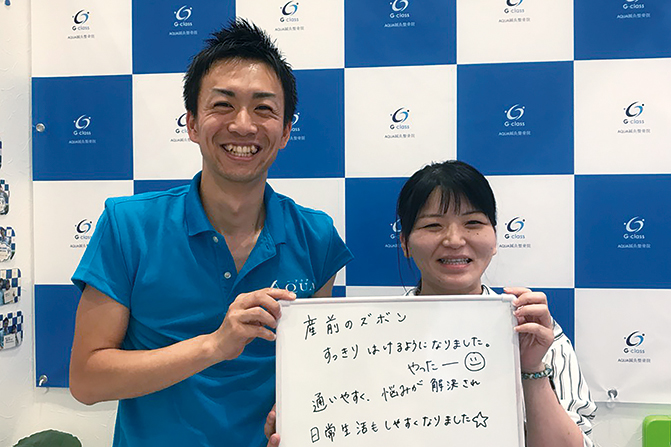 G-class
AQUA鍼灸整骨院
AQUA
産前のズボン
すっきりはけるようになりました。
やったー
通いやすく、悩みが解決され
日常生活もしやすくなりました☆